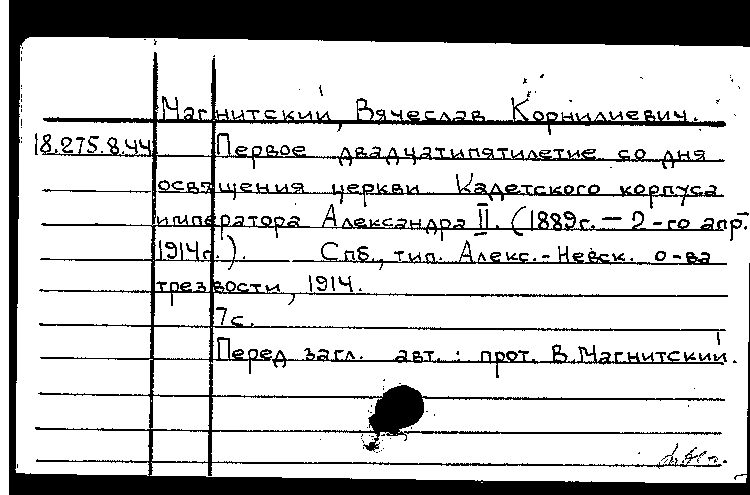 Магнитский, Вячеслав Корнилиевич.
18.275.8.44 Первое двадцатипятилетие со дня
освящения церкви Кадетского корпуса
императора Александра II. (1889г. — 2-го апр.
1914г.). Спб., тип. Алекс.-Невск. о-ва
трезвости, 1914.
7с.
Перед загл. авт.: прот. В.Магнитский.